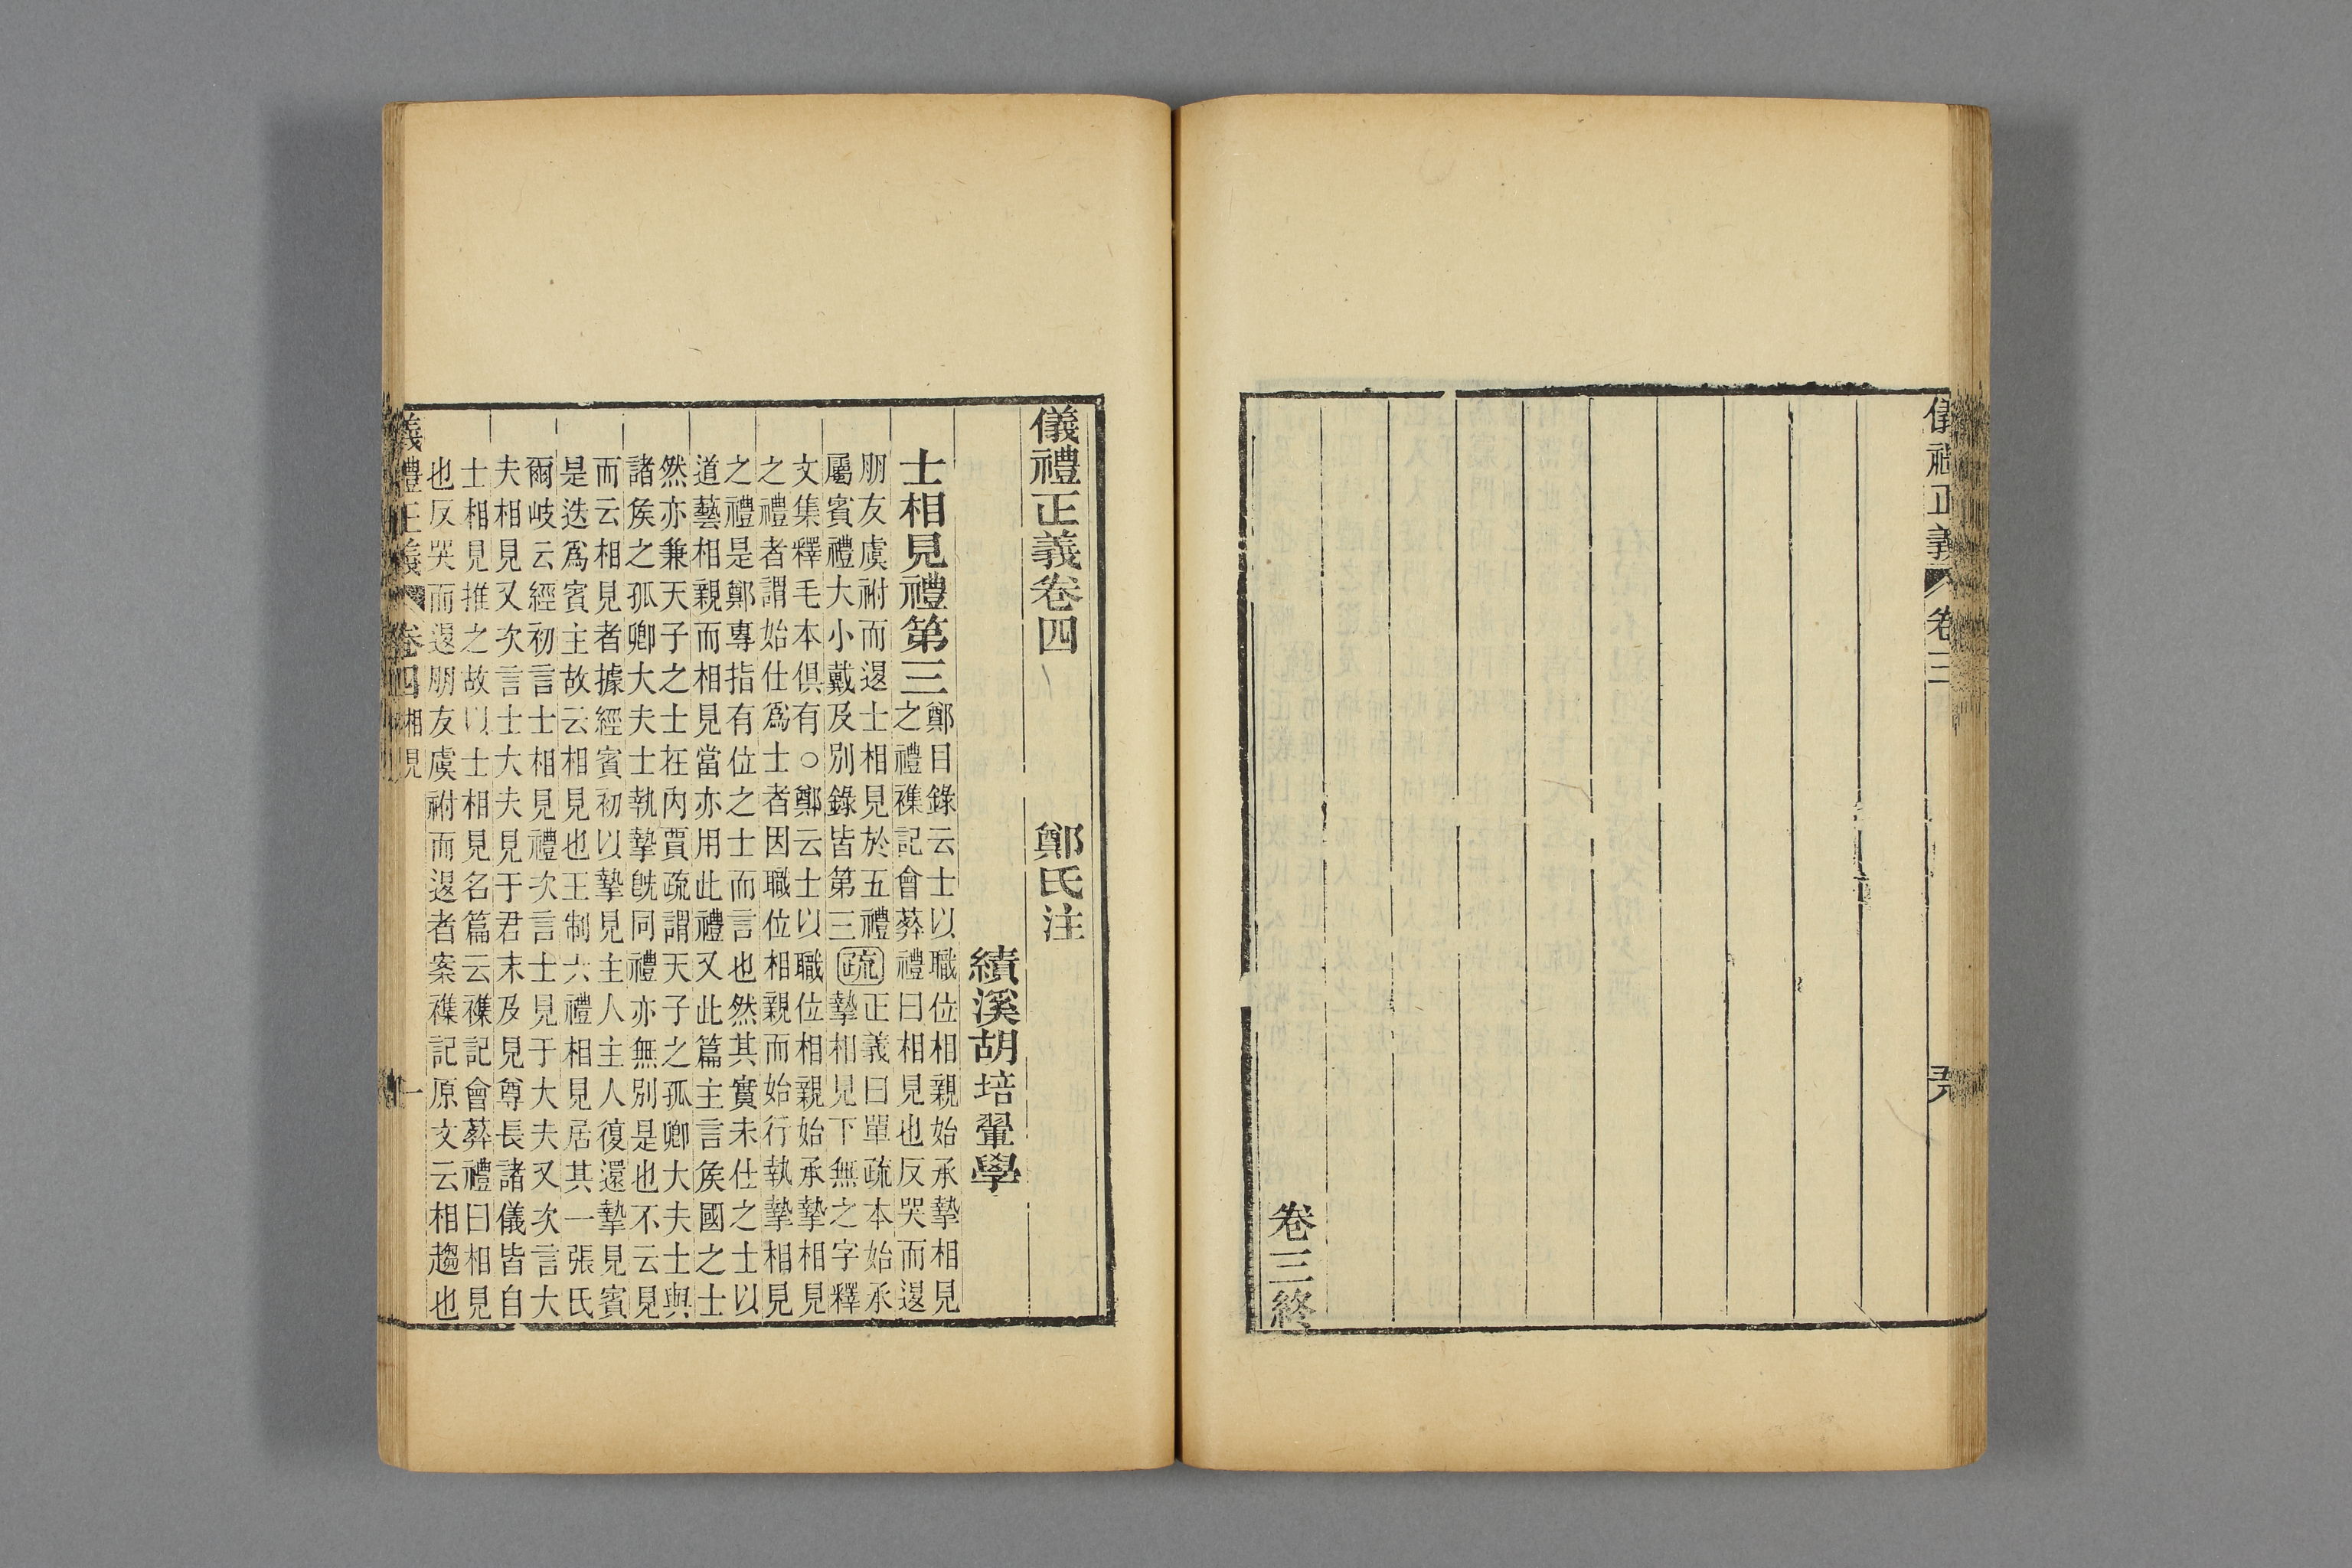 儀禮正義
卷三
卷三終
儀禮正義卷四
鄭氏注
績溪胡培翬學
士相見禮第三
鄭目錄云士以職位相親始承摯相見
之禮襍記會葬禮曰相見也反哭而退
朋友虞祔而退士相見於五禮
屬賓禮大小戴及別錄皆第三
疏
正義曰單疏本始承
摯相見下無之字釋
文集釋毛本俱有○鄭云士以職位相親始承摯相見
之禮者謂始仕爲士者因職位相親而始行執摯相見
之禮是鄭專指有位之士而言也然其實未仕之士以
道藝相親而相見當亦用此禮又此篇主言矦國之士
然亦兼天子之士在內賈疏謂天子之孤卿大夫士與
諸矦之孤卿大夫士執摯旣同禮亦無別是也不云見
而云相見者據經賓初以摯見主人主人復還摯見賓
是迭爲賓主故云相見也王制六禮相見居其一張氏
爾岐云經初言士相見禮次言士見于大夫又次言大
夫相見又次言士大夫見于君末及見尊長諸儀皆自
士相見推之故以士相見名篇云襍記會葬禮曰相見
也反哭而退朋友虞祔而退者案襍記原文云相趨也
義禮正義
卷四
相見
一